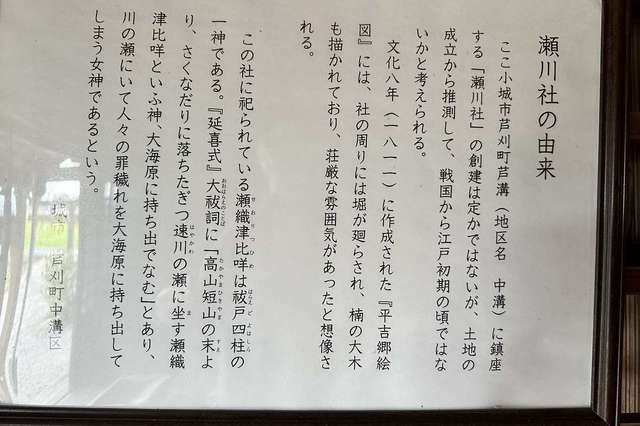 瀬川社の由来
ここ小城市芦刈町芦溝（地区名　中溝）に鎮座
する「瀬川社」の創建は定かではないが、土地の
成立から推測して、戦国から江戸初期の頃ではな
いかと考えられる。
文化八年（一八一一）に作成された『平吉郷絵
図』には、社の周りには堀が廻らされ、楠の大木
も描かれており、荘厳な雰囲気があったと想像さ
れる。
この社に祀られている瀬織津比咩は祓戸四柱の
一神である。『延喜式』大祓詞に「高山短山の末よ
り、さくなだりに落ちたぎつ速川の瀬に坐す瀬織
津比咩といふ神、大海原に持ち出でなむ」とあり、
川の瀬にいて人々の罪穢れを大海原に持ち出して
しまう女神であるという。
芦刈町中溝区